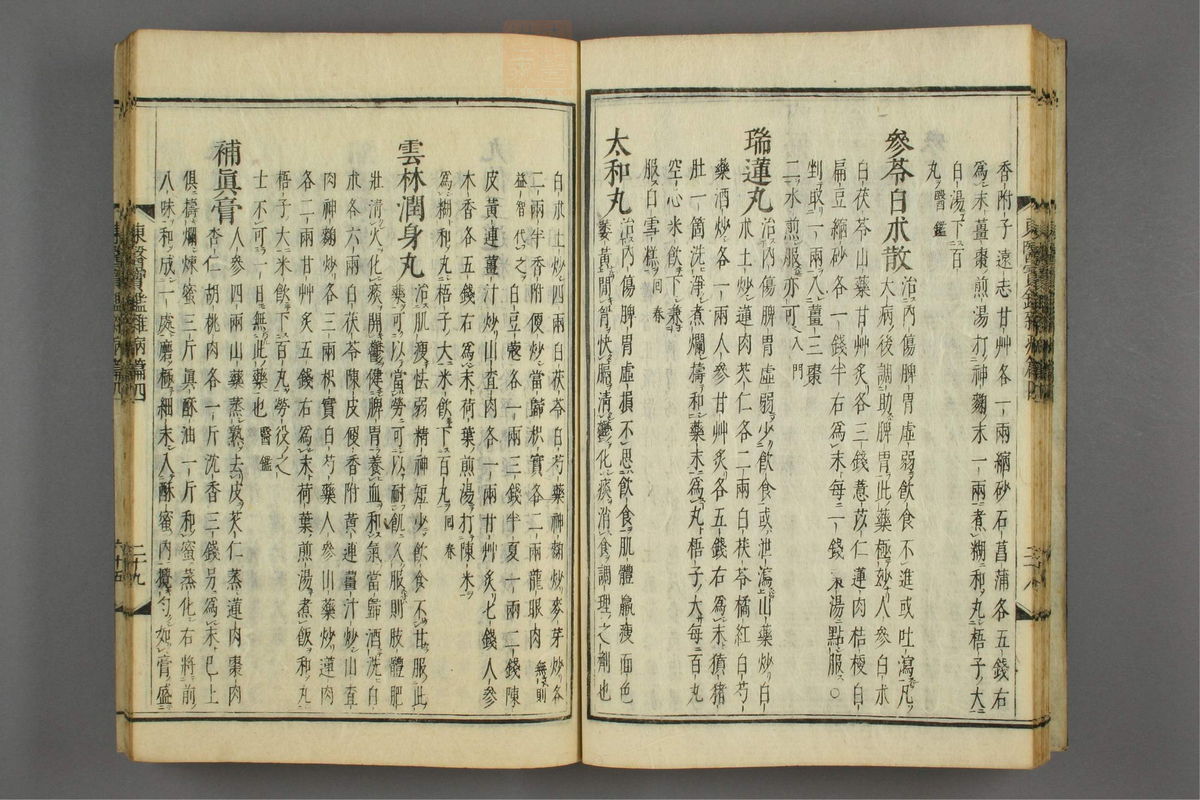 香附子遠志甘艸各一兩縮砂石菖蒲各五錢右
爲末薑棗煎湯打神麴末一兩煮糊和丸梧子大
白湯下百
丸醫鑑
參苓白朮散治內傷脾胃虛弱飮食不進或吐瀉凡
大病後調助脾胃此藥極玅人參白朮
白茯苓山藥甘艸炙各三錢薏苡仁蓮肉桔梗白
扁豆縮砂各一錢半右爲末每二錢棗湯點服○
剉取一兩入薑三棗
二水煎服亦可入門
瑞蓮丸治內傷脾胃虛弱少飮食或泄瀉山藥炒白
朮土炒蓮肉芡仁各二兩白茯苓橘紅白芍
藥酒炒各一兩人參甘艸炙各五錢右爲末獖猪
肚一箇洗淨煮爛擣和藥末爲丸梧子大每百丸
空心米飮下兼
服白雪糕回春
太和丸治內傷脾胃虛損不思飮食肌體羸瘦面色
萎黃開胷快膈清鬱化痰消食調理之劑也
白朮土炒四兩白茯苓白芍藥神麴炒麥芽炒各
二兩半香附便炒當歸枳實各二兩龍眼肉無則
益智代之白豆蔲各一兩三錢半夏一兩二錢陳
皮黃連薑汁炒山査肉各一兩甘艸炙七錢人參
木香各五錢右爲末荷葉煎湯打陳米
爲糊和丸梧子大米飮下百丸回春
雲林潤身丸治肌瘦怯弱精神短少飮食不甘服此
藥可以當勞可以耐飢久服則肢體肥
壯清火化痰開鬱健脾胃養血和氣當歸酒洗白
朮各六兩白茯苓陳皮便香附黃連薑汁炒山査
肉神麴炒各三兩枳實白芍藥人參山藥炒蓮肉
各二兩甘艸炙五錢右爲末荷葉煎湯煮飯和丸
梧子大米飮下百丸勞役之
士不可一日無此藥也醫鑑
補眞膏人參四兩山藥蒸熟去皮芡仁蒸蓮肉棗肉
杏仁胡桃肉各一斤沈香三錢另爲末已上
俱擣爛煉蜜三斤眞酥油一斤和蜜蒸化右將前
八味和成一處磨極細末入酥蜜內攪勻如膏盛
東醫寶鑑雜病篇四
二十九